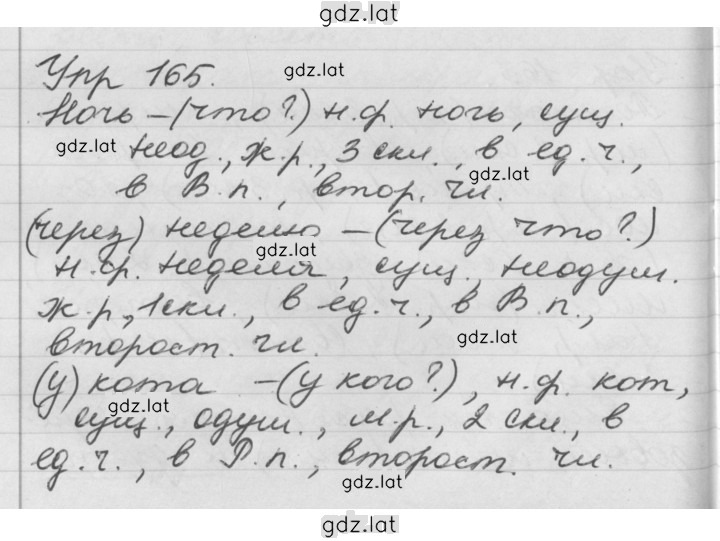 gdz.lat
Упр 165.
gdz.lat
Ночь – (что?) н.ф. ночь, сущ.
gdz.lat
неод., ж.р., 3 скл., в ед.ч.,
gdz.lat
в В.п., втор. чл.
(через) неделю – (через что?)
gdz.lat
н.ф. неделя, сущ., неодуш.
ж.р., 1 скл., в ед.ч., в В.п.,
gdz.lat
второст. чл.
(у) кота – (у кого?), н.ф. кот,
gdz.lat
сущ., одуш., м.р., 2 скл., в
ед.ч., в Р.п., второст. чл.
gdz.lat
gdz.lat